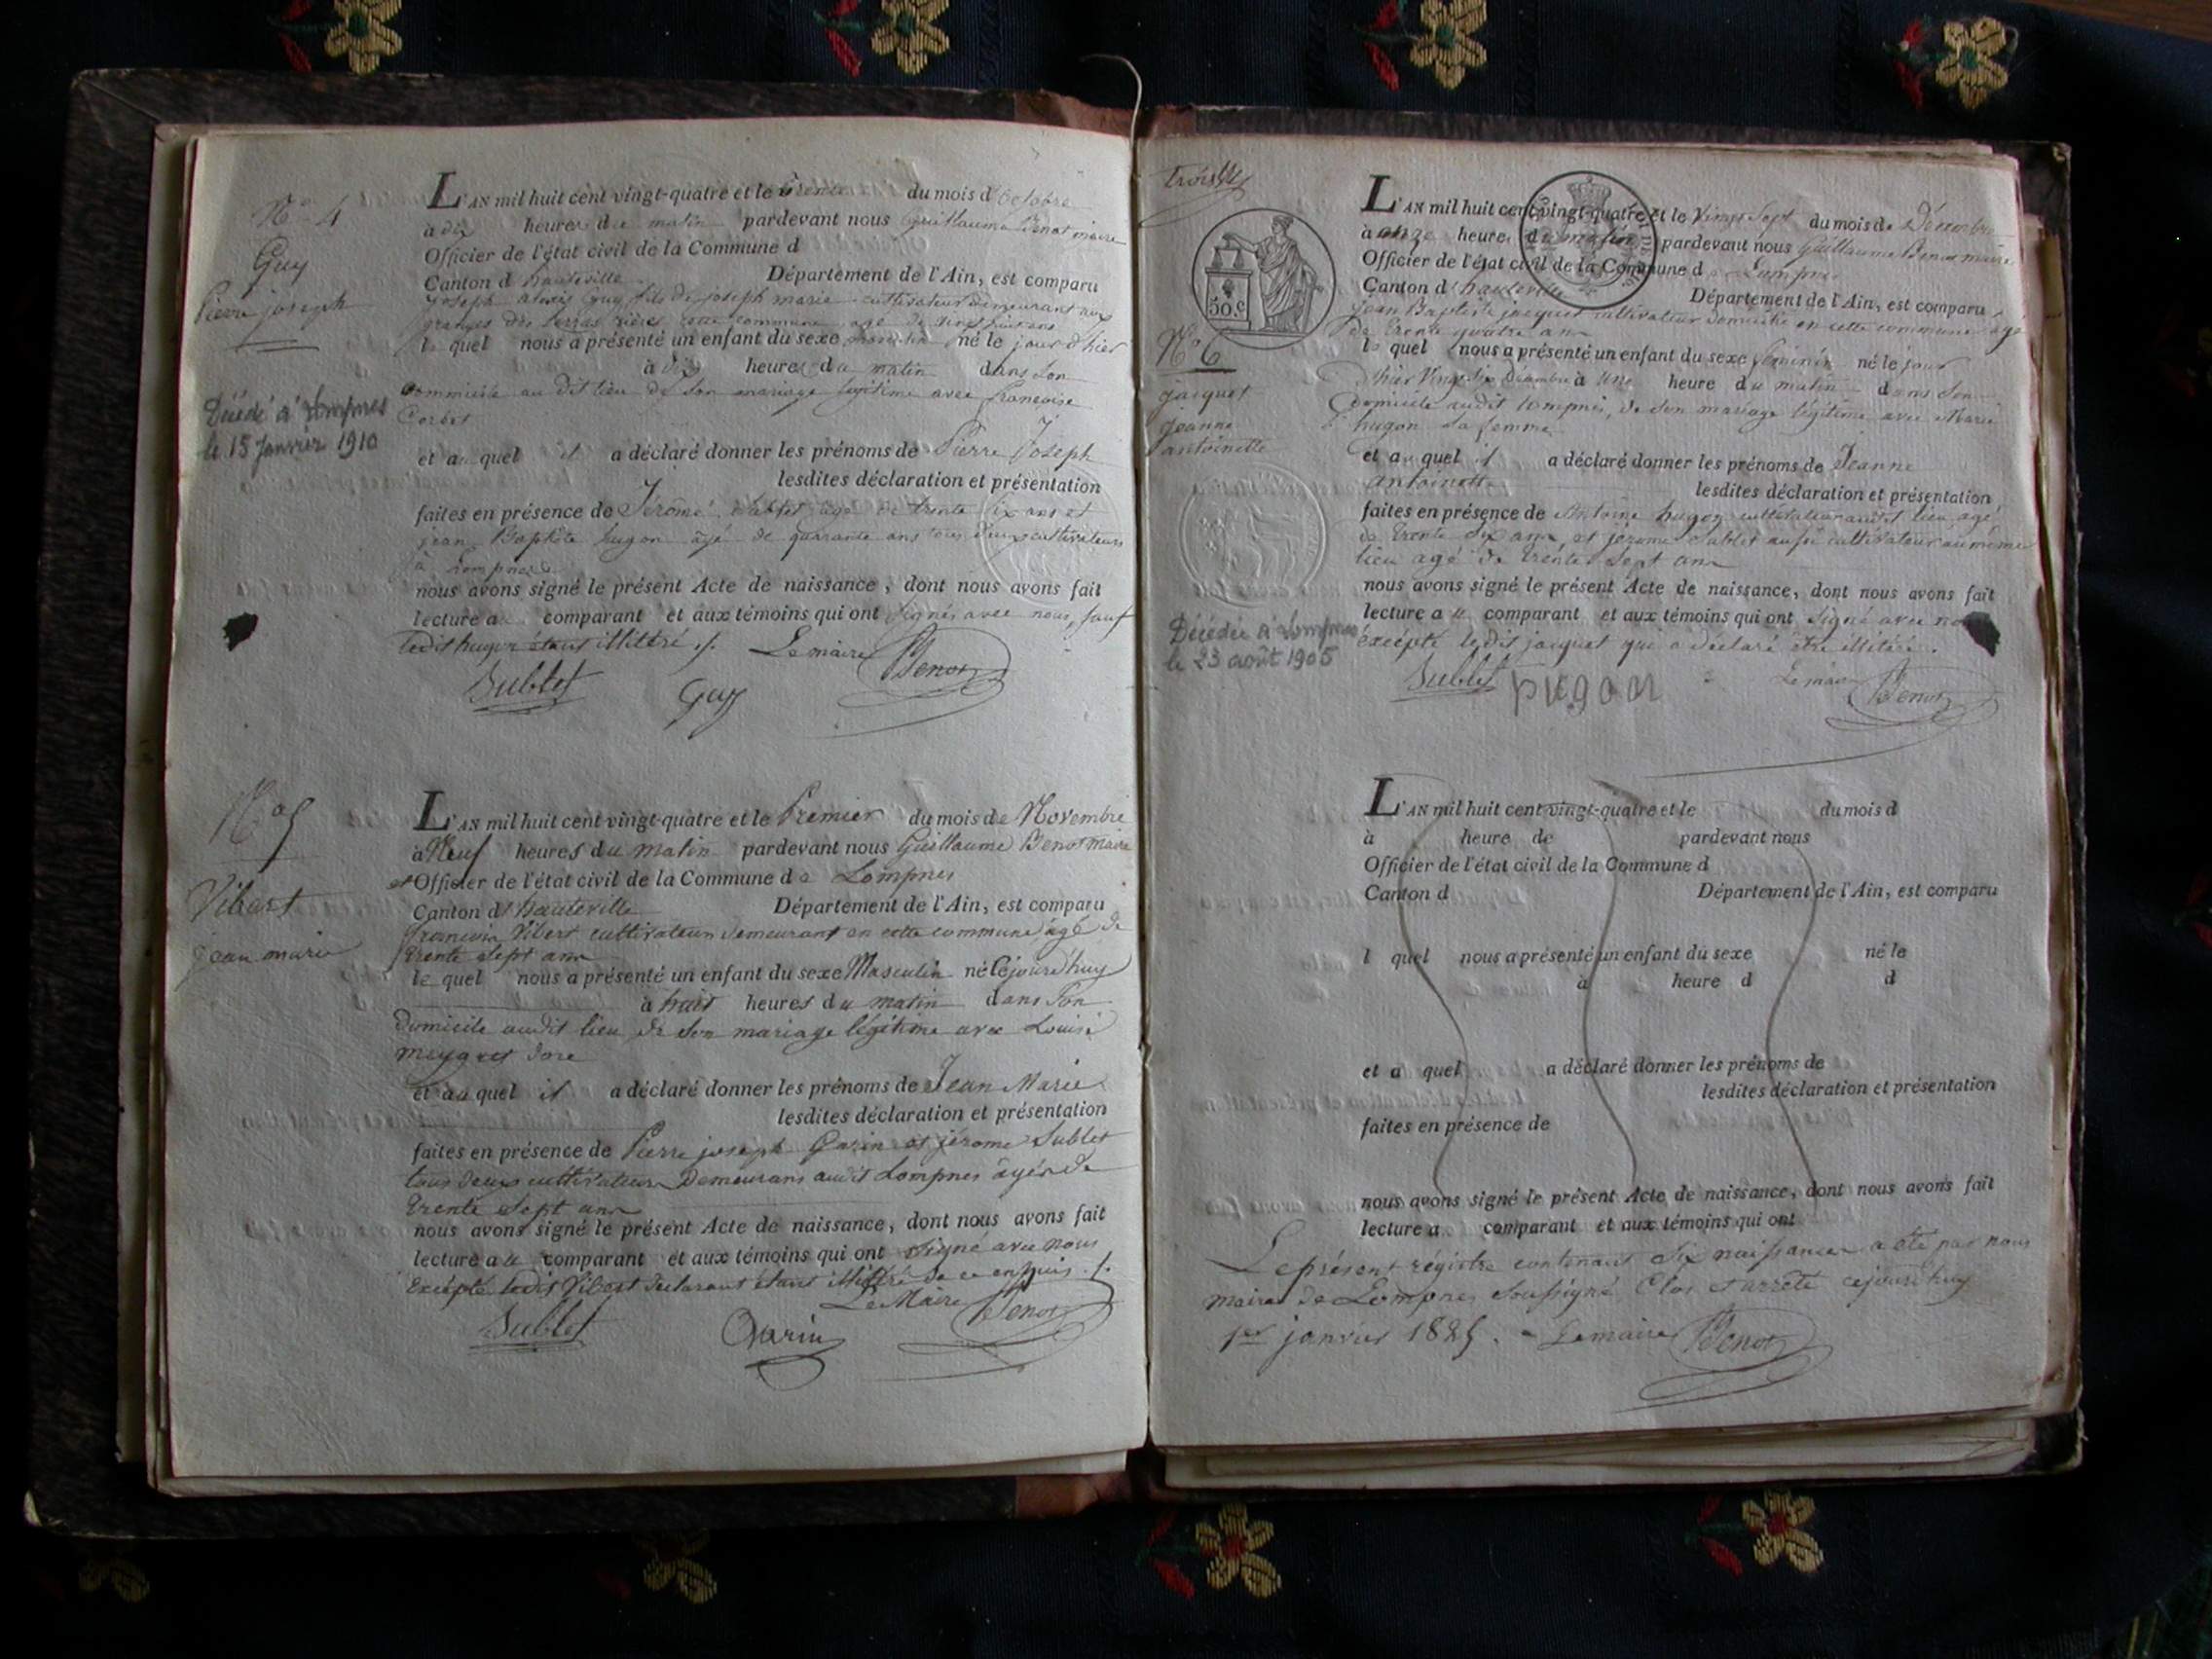 N.º 4
Guy
Pierre joseph
Décédé à Lompnes
le 15 Janvier 1910
L'AN mil huit cent vingt-quatre et le trente du mois d'Octobre
à dix heures du matin pardevant nous Guillaume Benot maire
Officier de l'état civil de la Commune d
Canton d'hauteville Département de l'Ain, est comparu
Joseph alexis Guy fils de joseph marie cultivateur demeurant aux
granges des cette commune agé de vingt huit ans
le quel nous a présenté un enfant du sexe masculin né le jour d'hier
à dix heures du matin dans son
dommicile au dit lieu de son mariage légitime avec francoise
Corbet
et au quel il a déclaré donner les prénoms de Pierre Joseph
lesdites déclaration et présentation
faites en présence de Jérome Sublet agé de trente six ans et
jean Baptiste hugon âgé de quarante ans tous deux cultivateurs
à Lompnes
nous avons signé le présent Acte de naissance, dont nous avons fait
lecture au comparant et aux témoins qui ont signés avec nous, sauf
ledit hugon étant illitéré ./. Le maire Benot
Sublet Guy
N.º 5
Vibert
jean marie
L'AN mil huit cent vingt-quatre et le Premier du mois de Novembre
à Neuf heures du matin pardevant nous Guillaume Benot maire
et Officier de l'état civil de la Commune de Lompnes
Canton d'hauteville Département de l'Ain, est comparu
francois Vibert cultivateur demeurant en cette commune âgé de
trente sept ans
le quel nous a présenté un enfant du sexe Masculin né cejourd'huy
à huit heures du matin dans son
Domicile audit lieu de son mariage légitime avec Louise
meygret
et au quel il a déclaré donner les prénoms de Jean Marie
lesdites déclaration et présentation
faites en présence de Pierre joseph Garin et jérome Sublet
tous deux cultivateurs Demeurans audit Lompnes âgés de
trente Sept ans
nous avons signé le présent Acte de naissance, dont nous avons fait
lecture au comparant et aux témoins qui ont signé avec nous
Excépté ledit Vibert déclarant étant illitéré de ce enquis ./.
Le Maire Benot
Sublet Garin
trois
50 c
N.º 6
jacquet
jeanne
antoinette
Décédée à Lompnes
le 23 août 1905
L'AN mil huit cent vingt-quatre et le Vingt Sept du mois de Décembre
à onze heures du matin pardevant nous Guillaume Benot maire
Officier de l'état civil de la Commune de Lompnes
Canton d'hauteville Département de l'Ain, est comparu
jean Baptiste jacquet cultivateur domicilié en cette commune agé
de trente quatre ans
le quel nous a présenté un enfant du sexe féminin né le jour
d'hier Vingt six Décembre à une heure du matin dans son
domicile audit lompnes, de son mariage légitime avec Marie
hugon sa femme
et au quel il a déclaré donner les prénoms de Jeanne
antoinette lesdites déclaration et présentation
faites en présence de Antoine hugon cultivateur audit lieu agé
de trente six ans, et jérome Sublet aussi cultivateur au même
lieu agé de trente sept ans
nous avons signé le présent Acte de naissance, dont nous avons fait
lecture au comparant et aux témoins qui ont signé avec nous
excépté ledit jacquet qui a déclaré être illitéré.
Sublet hugon Le maire Benot
L'AN mil huit cent vingt-quatre et le du mois d
à heure de pardevant nous
Officier de l'état civil de la Commune d
Canton d Département de l'Ain, est comparu
l quel nous a présenté un enfant du sexe né le
à heure d d
et a quel a déclaré donner les prénoms de
lesdites déclaration et présentation
faites en présence de
nous avons signé le présent Acte de naissance, dont nous avons fait
lecture a comparant et aux témoins qui ont
Le présent régistre contenant six naissances a été par nous
maire de Lompnes soussigné Clos et arrêté cejourd'huy
1er janvier 1825. - Le maire Benot